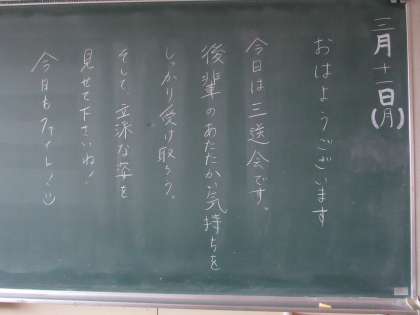 三月十一日(月)
おはようございます
今日は三送会です。
後輩のあたたかい気持ちを
しっかり受け取ろう。
そして、立派な姿を
見せて下さいね!
今日もファイト!